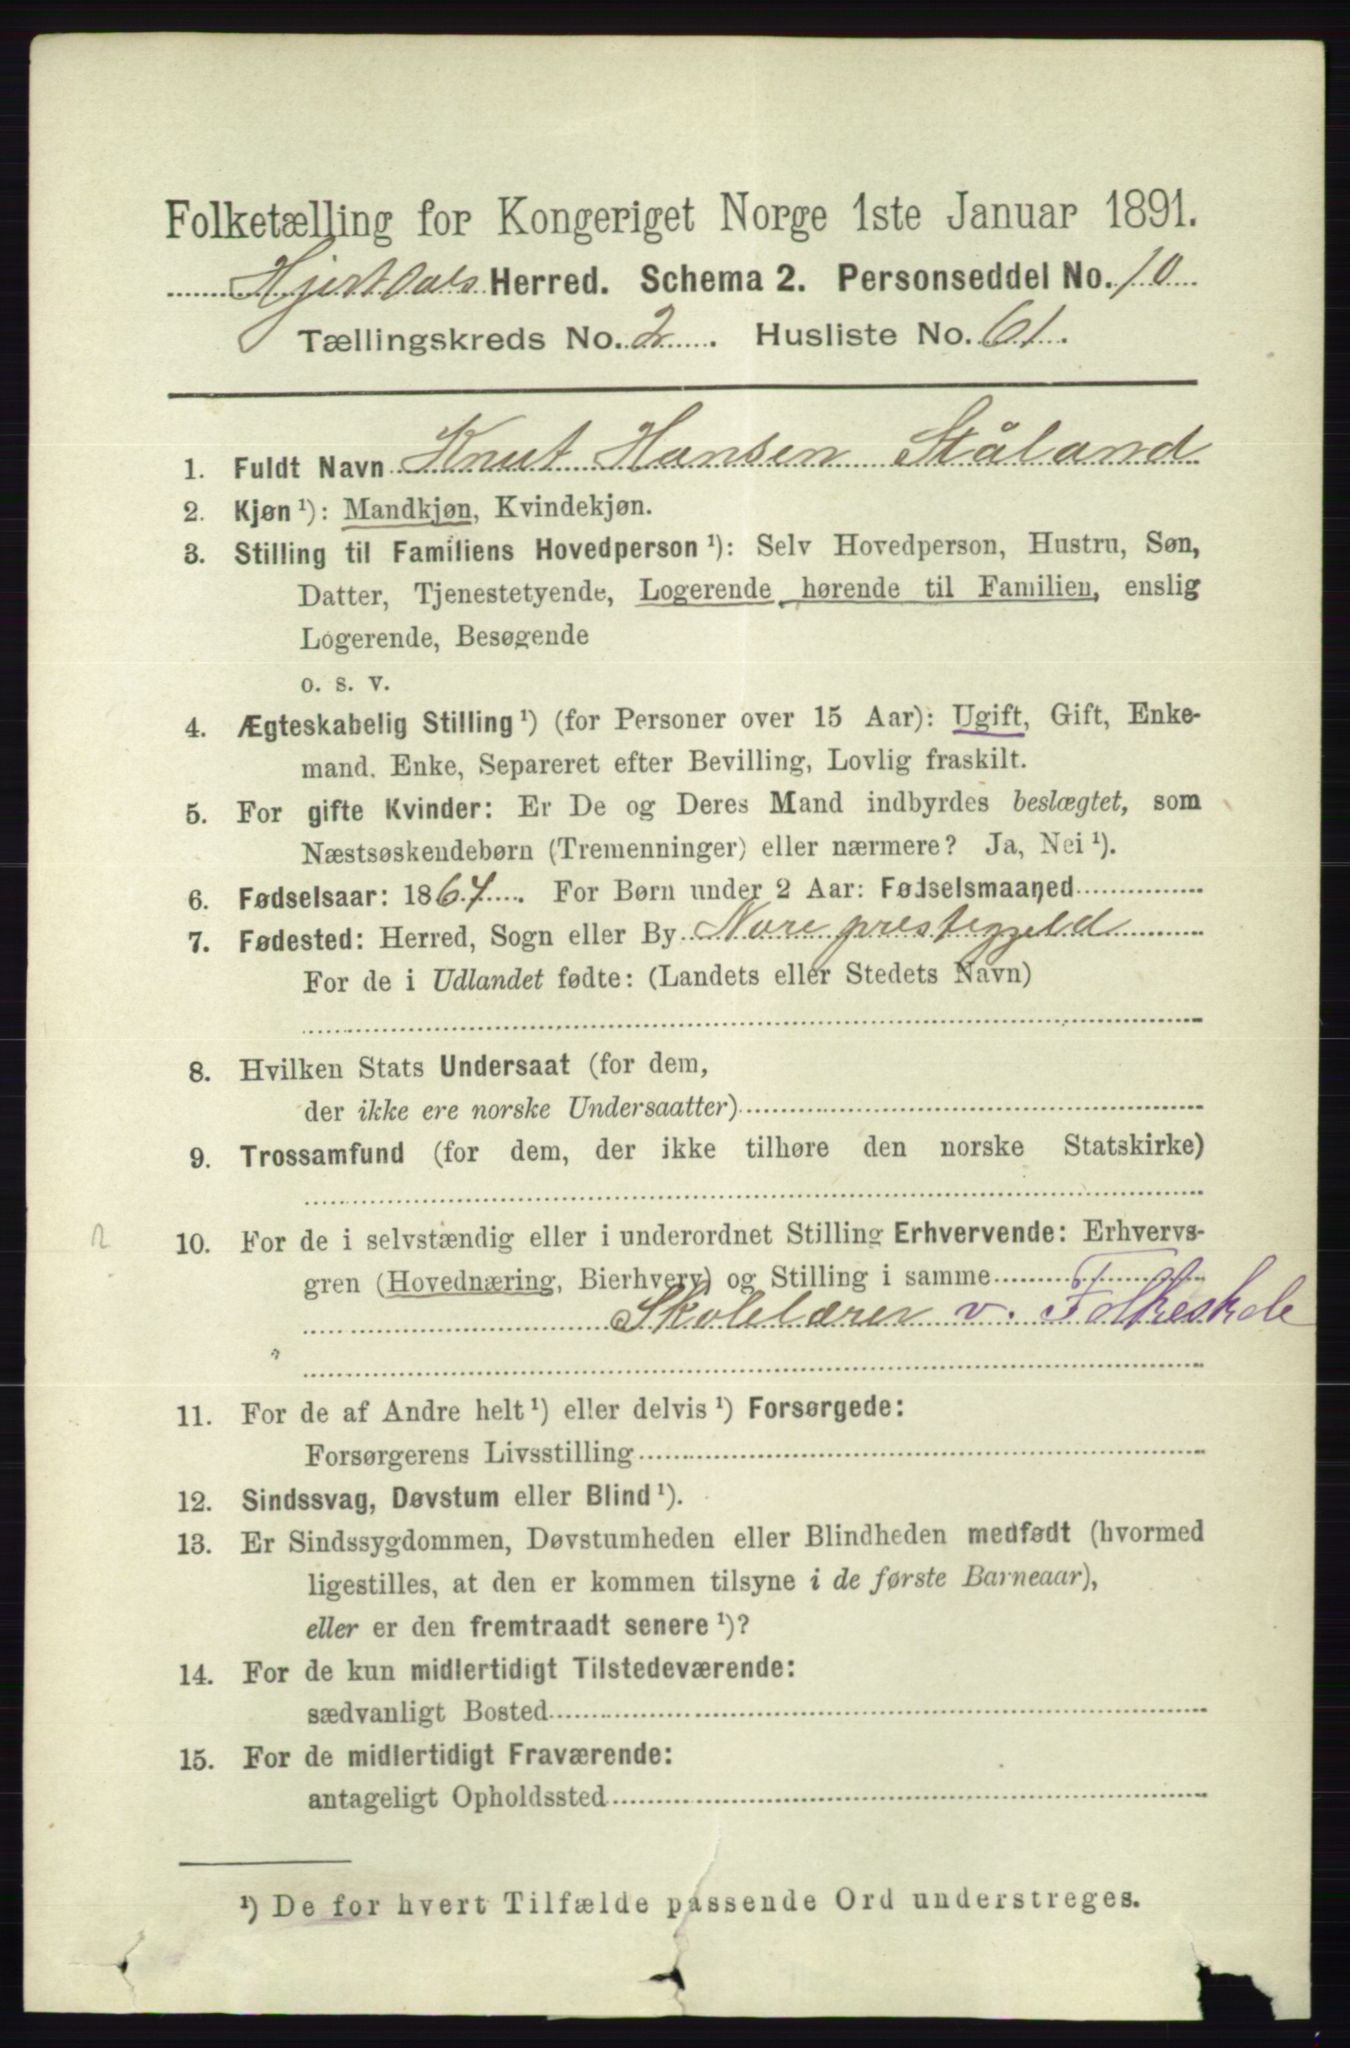 Folketælling for Kongeriget Norge 1ste Januar 1891.
Hjertdals Herred. Schema 2. Personseddel No. 10
Tællingskreds No. 2. Husliste No. 61.
1. Fuldt Navn Knut Hansen Ståland
2. Kjøn ¹): Mandkjøn, Kvindekjøn.
3. Stilling til Familiens Hovedperson ¹): Selv Hovedperson, Hustru, Søn,
Datter, Tjenestetyende, Logerende hørende til Familien, enslig
Logerende, Besøgende
o. s. v.
4. Ægteskabelig Stilling ¹) (for Personer over 15 Aar): Ugift, Gift, Enke-
mand. Enke, Separeret efter Bevilling, Lovlig fraskilt.
5. For gifte Kvinder: Er De og Deres Mand indbyrdes beslægtet, som
Næstsøskendebørn (Tremenninger) eller nærmere? Ja, Nei ¹).
6. Fødselsaar: 1867. For Børn under 2 Aar: Fødselsmaaned
7. Fødested: Herred, Sogn eller By Nore prestegjeld
For de i Udlandet fødte: (Landets eller Stedets Navn)
8. Hvilken Stats Undersaat (for dem,
der ikke ere norske Undersaatter)
9. Trossamfund (for dem, der ikke tilhøre den norske Statskirke)
10. For de i selvstændig eller i underordnet Stilling Erhvervende: Erhvervs-
gren (Hovednæring, Bierhverv) og Stilling i samme
Skolelærer v. Folkeskole
11. For de af Andre helt ¹) eller delvis ¹) Forsørgede:
Forsørgerens Livsstilling
12. Sindssvag, Døvstum eller Blind ¹).
13. Er Sindssygdommen, Døvstumheden eller Blindheden medfødt (hvormed
ligestilles, at den er kommen tilsyne i de første Barneaar),
eller er den fremtraadt senere ¹)?
14. For de kun midlertidigt Tilstedeværende:
sædvanligt Bosted
15. For de midlertidigt Fraværende:
antageligt Opholdssted
¹) De for hvert Tilfælde passende Ord understreges.